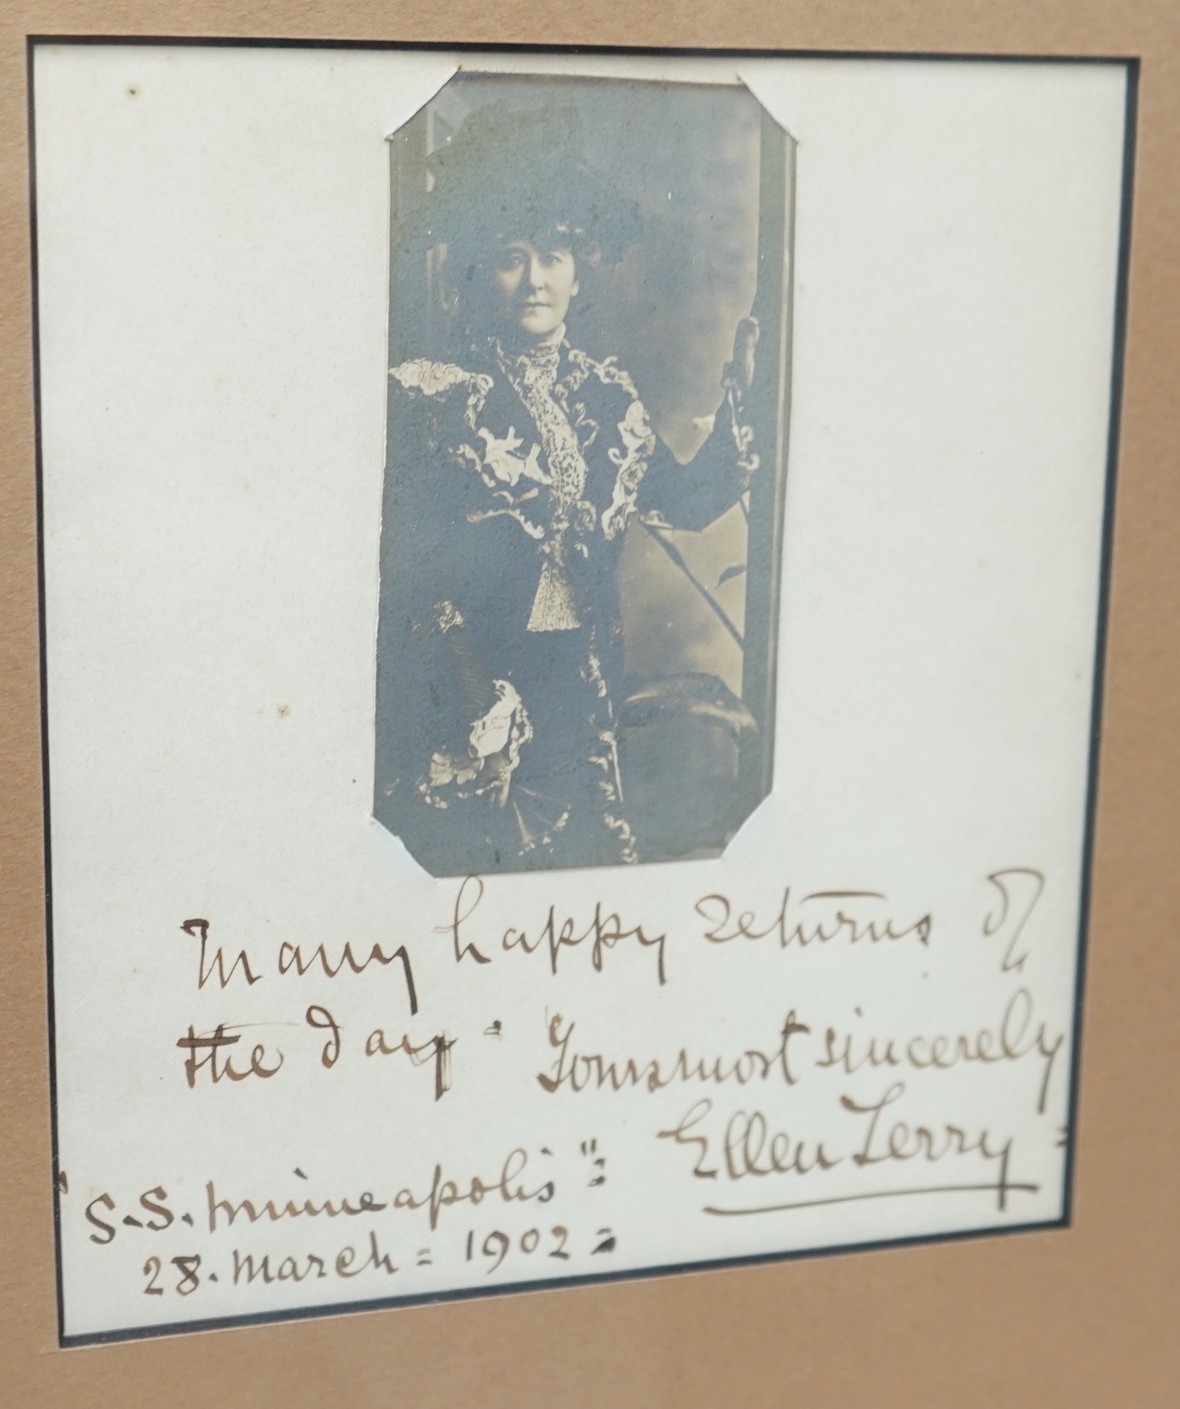 Many happy returns of
the day - Yours most sincerely
Ellen Terry =
"S.S. Minneapolis" =
28. March = 1902 =